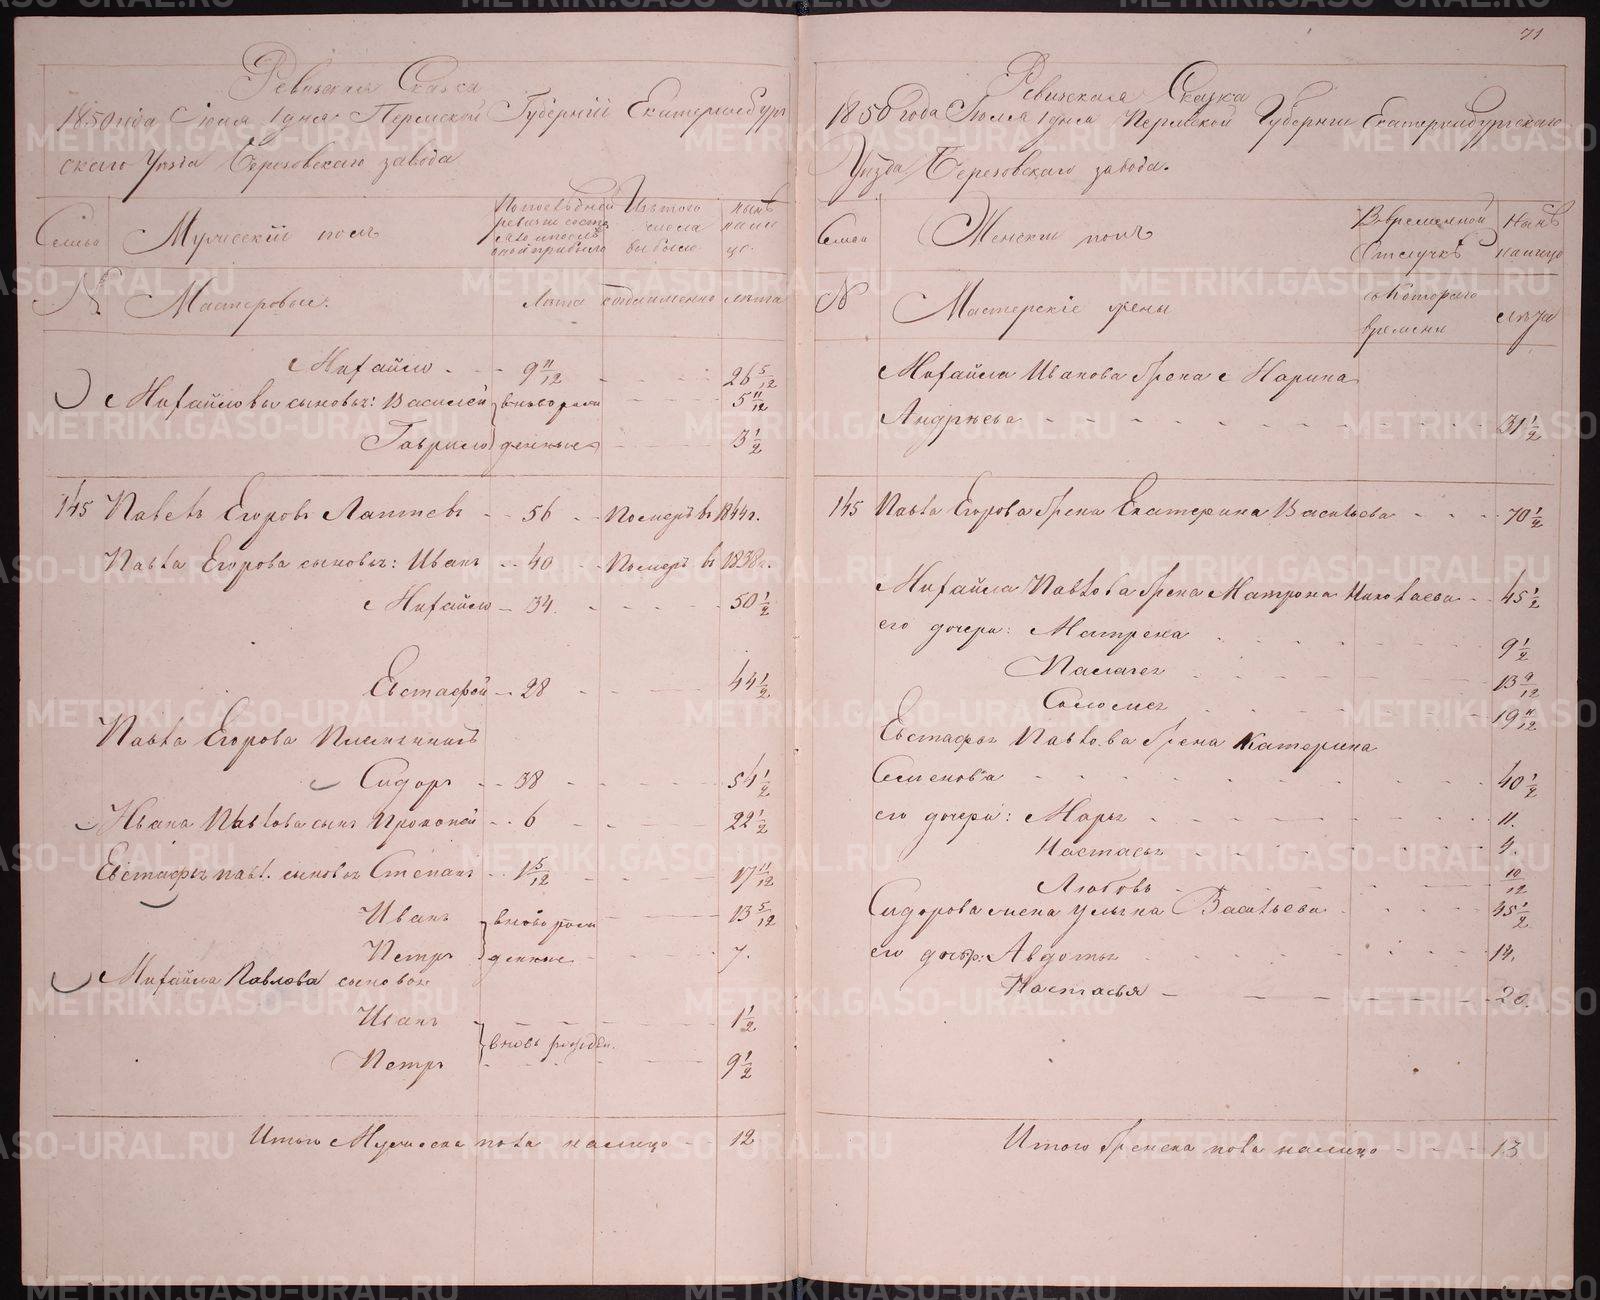 71
Ревизская Сказка
1850 года Июля 1 дня Пермской Губерніи Екатеринбург
скаго Уѣзда Березовскаго завода
Семьи
Мужескій полъ
По последней
ревизіи состо
яло и послѣ
оной прибыло
Изъ того
числа
выбыло
нынѣ
нали
цо.
№
Мастеровые.
Лѣта
лѣта
Михайло - - - 9 11/12 - - - 26 5/12
Михайловы сыновья: Василей вново рож 5 11/12
Гаврило денные 3 1/2
145 Павелъ Егоровъ Лаптевъ - - 56 - - Померъ въ 1844 г.
Павла Егорова сыновья: Иванъ - - 40 - - Померъ въ 1838 г.
Михайло - 34. - - - 50 1/2
Евстафей - - 28 - - - 44 1/2
Павла Егорова Племянникъ
Сидоръ - - 38 - - - 54 1/2
Ивана Павлова сынъ Прокопей - - 6 - - - 22 1/2
Евстафья павл. сыновья Степанъ - - 1 5/12 - - - 17 11/12
Иванъ вново рож 13 5/12
Петръ денные - - - 7.
Михайла Павлова сыновья
Иванъ - - - 1 1/2
вновь рожден.
Петръ - - - 9 1/2
Итого Мужеска пола налицо - 12
Ревизская Сказка
1850 года Июля 1 дня Пермской Губерніи Екатеринбургскаго
Уѣзда Березовскаго завода.
Семьи
Женскій полъ
Во временной
Отлучкѣ
Нынѣ
налицо
№
Мастерскіе жены
съ Котораго
времени
лѣта
Михайла Иванова жена Марина
Андрѣева - - - 31 1/2
145 Павла Егорова жена Екатерина Васильева - - - 70 1/2
Михайла Павлова жена Матрона Николаева - - 45 1/2
его дочери: Матрена - - - 9 1/2
Палагея - - - 13 9/12
Соломея - - - 19 11/12
Евстафья Павлова жена Катерина
Семенова - - - 40 1/2
его дочери: Марья - - - 11.
Настасья - - - 4.
Любовь - - - 10/12
Сидорова жена Ульяна Васильева - - - 45 1/2
его дочер: Авдотья - - - 14.
Настасья - - - 20.
Итого женска пола налицо - - - 13
METRIKI.GASO-URAL.RU